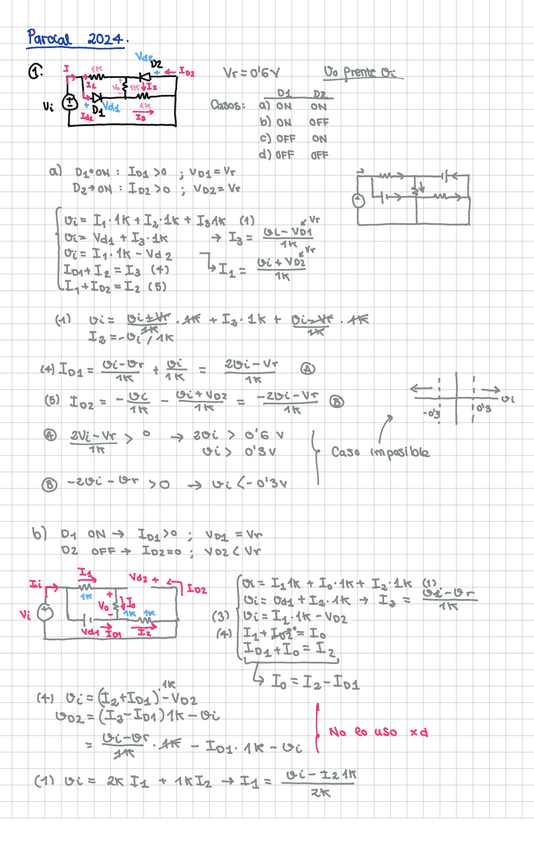 Parcial 2024.
①.
I 1K Vd2 D2 + I D2
I1 Vo I2
Vi + Vd1 1K
Id1 D1 I3
Vr = 0'6V Vo frente Vi
D1 D2
Casos: a) ON ON
b) ON OFF
c) OFF ON
d) OFF OFF
a) D1 → ON : ID1 > 0 ; VD1 = Vr
D2 → ON : ID2 > 0 ; VD2 = Vr
Vi = I1·1K + I2·1K + I3 1K (1)
Vi = Vd1 + I3·1K → I3 = (Vi - VD1)/1K Vr
Vi = I1·1K - Vd2
→ I1 = (Vi + VD2)/1K Vr
ID1 + I2 = I3 (4)
I1 + ID2 = I2 (5)
(1) Vi = (Vi + Vr)/1K · 1K + I2·1K + (Vi - Vr)/1K · 1K
I2 = -Vi/1K
(4) ID1 = (Vi - Vr)/1K + Vi/1K = (2Vi - Vr)/1K Ⓐ
(5) ID2 = -Vi/1K - (Vi + VD2)/1K = (-2Vi - Vr)/1K Ⓑ
-0'3 0'3 Vi
Ⓐ (2Vi - Vr)/1K > 0 → 2Vi > 0'6 V
Vi > 0'3V
Caso imposible
Ⓑ -2Vi - Vr > 0 → Vi < -0'3V
b) D1 ON → ID1 > 0 ; VD1 = Vr
D2 OFF → ID2 = 0 ; VD2 < Vr
Ii I1 Vd2 + ID2
1K + Vo - Io
Vi 1K 1K
Vd1 ID1 I2
Vi = I1 1K + Io·1K + I2·1K (1)
Vi = Vd1 + I2·1K → I2 = (Vi - Vr)/1K
(3) Vi = I1·1K - VD2
(4) I1 + ID2 = Io
ID1 + Io = I2
↳ Io = I2 - ID1
(4) Vi = (I2 + ID1)·1K - VD2
VD2 = (I2 - ID1) 1K - Vi
= (Vi - Vr)/1K · 1K - ID1·1K - Vi
No lo uso xd
(1) Vi = 2K I1 + 1K I2 → I1 = (Vi - I2 1K)/2K